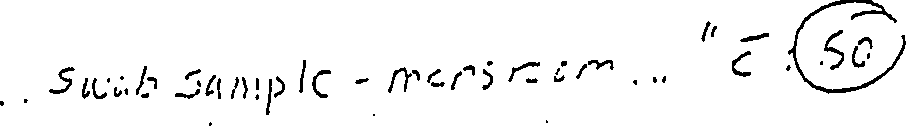 .. swab sample - mens room ... " c̄ . 50